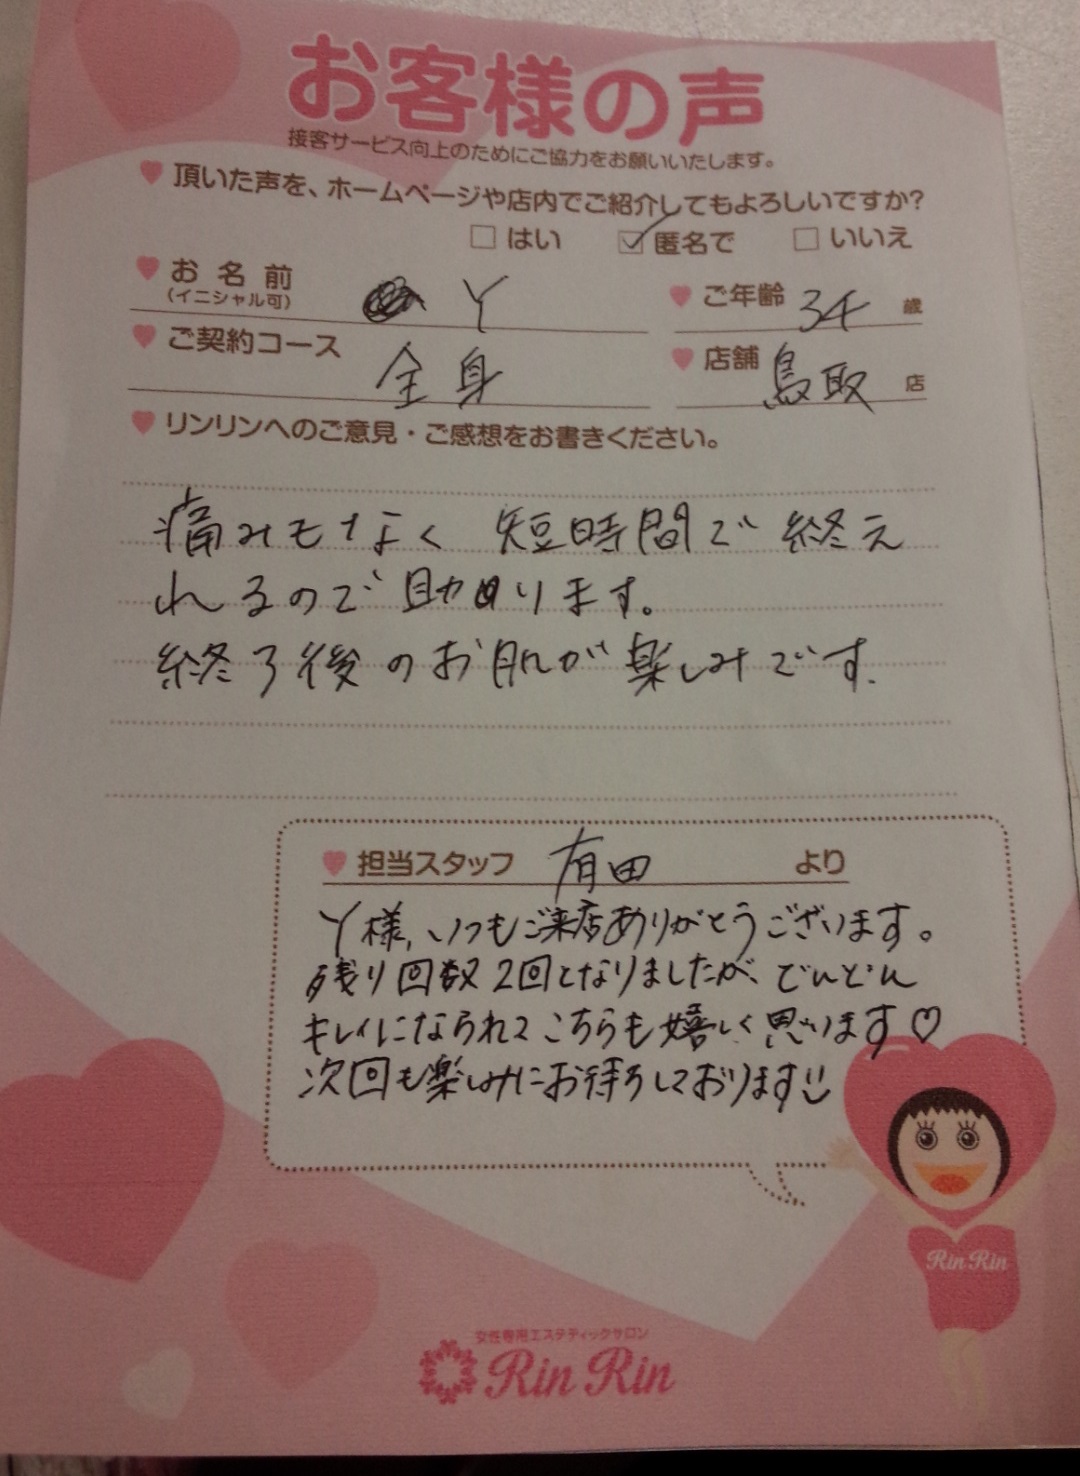 お客様の声
接客サービス向上のためにご協力をお願いいたします。
頂いた声を、ホームページや店内でご紹介してもよろしいですか?
はい 匿名で いいえ
お名前 Y ご年齢 34 歳
(イニシャル可)
ご契約コース 全身 店舗 鳥取 店
リンリンへのご意見・ご感想をお書きください。
痛みもなく 短時間で 終え
れるので助かります。
終了後のお肌が楽しみです.
担当スタッフ 有田 より
Y様,いつもご来店ありがとうございます。
残り回数2回となりましたが、どんどん
キレイになられてこちらも嬉しく思います♡
次回も楽しみにお待ちしております
Rin Rin
女性専用エステティックサロン
Rin Rin